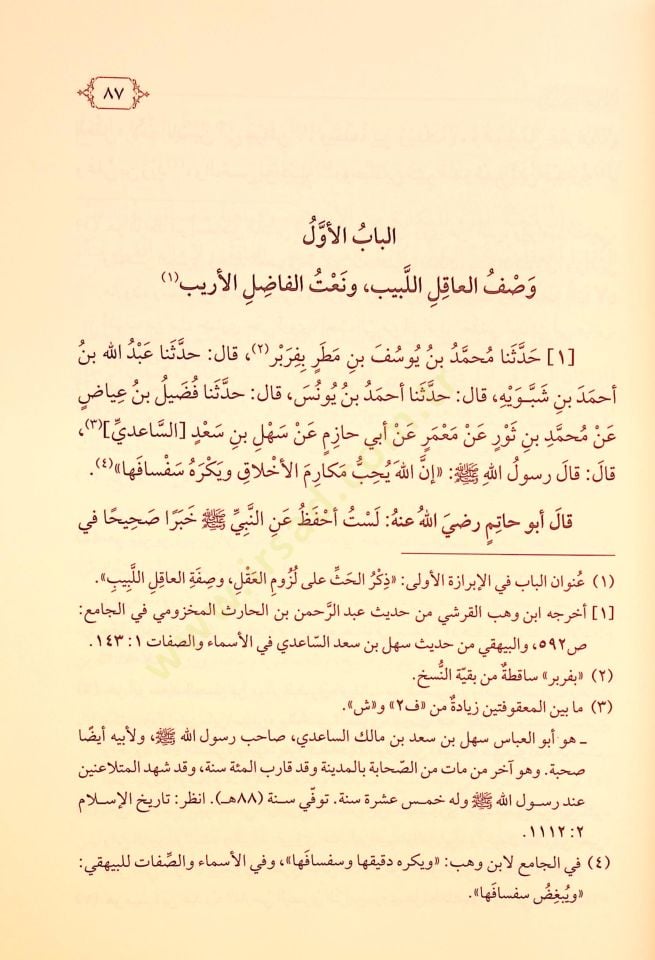 ٨٧
الباب الأوَّلُ
وَصْفُ العاقِلِ اللَّبيب، ونَعْتُ الفاضِلِ الأريب(١)
[١] حَدَّثَنا مُحمَّدُ بنُ يُوسُفَ بنِ مَطَرٍ بِفِرَبْر(٢)، قال: حدَّثَنا عَبْدُ الله بنُ
أحمَدَ بنِ شَبَّـوَيْهِ، قال: حدَّثَنا أحمَدُ بنُ يُونُسَ، قال: حدَّثَنا فُضَيلُ بنُ عِياضٍ
عَنْ مُحمدِ بنِ ثَوْرٍ عَنْ مَعْمَرٍ عَنْ أبي حازِمٍ عَنْ سَهْلِ بنِ سَعْدٍ [السَّاعديِّ](٣)،
قالَ: قالَ رسولُ اللهِ ﷺ: «إنَّ اللهَ يُحِبُّ مَكارِمَ الأخْلاقِ ويَكْرَهُ سَفْسافَها»(٤).
قالَ أبو حاتِمٍ رضيَ اللهُ عنهُ: لَسْتُ أحْفَظُ عَنِ النَّبِيِّ ﷺ خَبَرًا صَحِيحًا في
(١) عُنوان الباب في الإبرازة الأولى: «ذِكْرُ الحَثِّ على لُزُومِ العَقْلِ، وصِفَةِ العاقِلِ اللَّبِيبِ».
[١] أخرجه ابن وهب القرشي من حديث عبد الرَّحمن بن الحارث المخزومي في الجامع:
ص٥٩٢، والبيهقي من حديث سهل بن سعد السّاعدي في الأسماء والصفات ١: ١٤٣.
(٢) «بفربر» ساقطةٌ من بقيّة النُّسخ.
(٣) ما بين المعقوفتين زيادةٌ من «ف٢» و«ش».
ـ هو أبو العباس سهل بن سعد بن مالك الساعدي، صاحب رسول الله ﷺ، ولأبيه أيضًا
صحبة. وهو آخر من مات من الصّحابة بالمدينة وقد قارب المئة سنة، وقد شهد المتلاعنين
عند رسول الله ﷺ وله خمس عشرة سنة. توفّي سنة (٨٨هـ). انظر: تاريخ الإسلام
٢: ١١١٢.
(٤) في الجامع لابن وهب: «ويكره دقيقها وسفسافها»، وفي الأسماء والصِّفات للبيهقي:
«ويُبغِضُ سفسافَها».